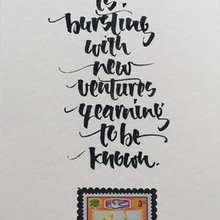 is,
bursting
with
new
ventures
yearning
to be
known.
3c